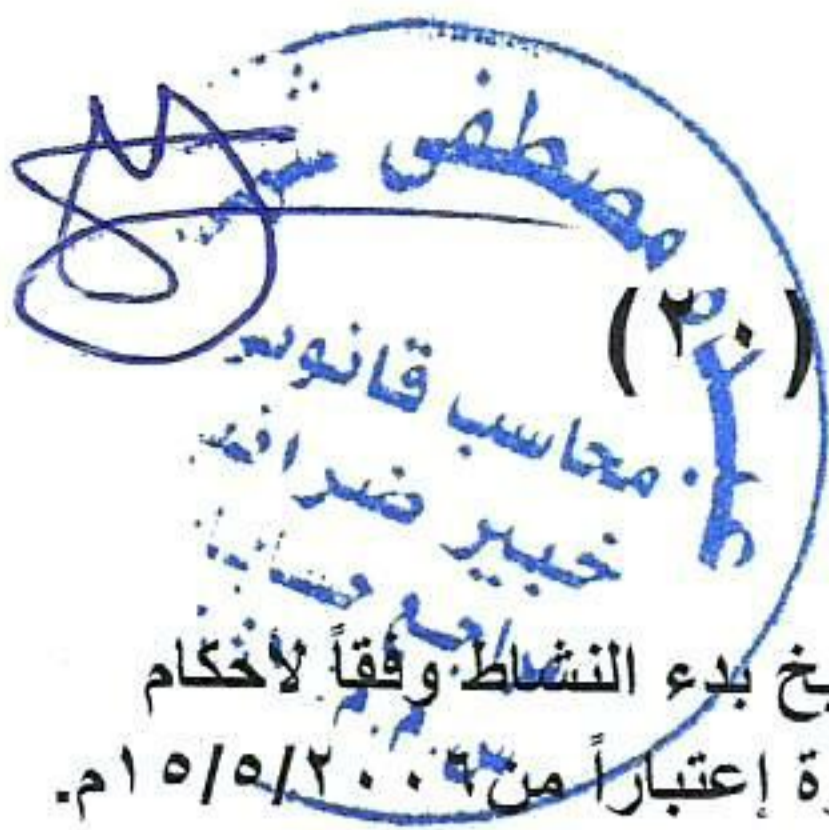 مصطفى
(٢٠)
محاسب قانونى
خبير ضرائب
يخ بدء النشاط وفقاً لأحكام
رة إعتباراً من ١٥/٥/٢٠٠٦م.